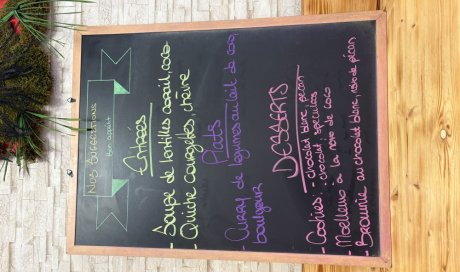 Nos Suggestions
Bon appétit
Entrées
- Soupe de lentilles corail, coco
- Quiche courgettes, chèvre
Plats
- Curry de légumes au lait de coco,
boulgour
DESSERTS
- Cookies : - chocolat blanc pécan
- chocolat, spéculoos
- Moelleux à la noix de coco
- Brownie au chocolat blanc, noix de pécan